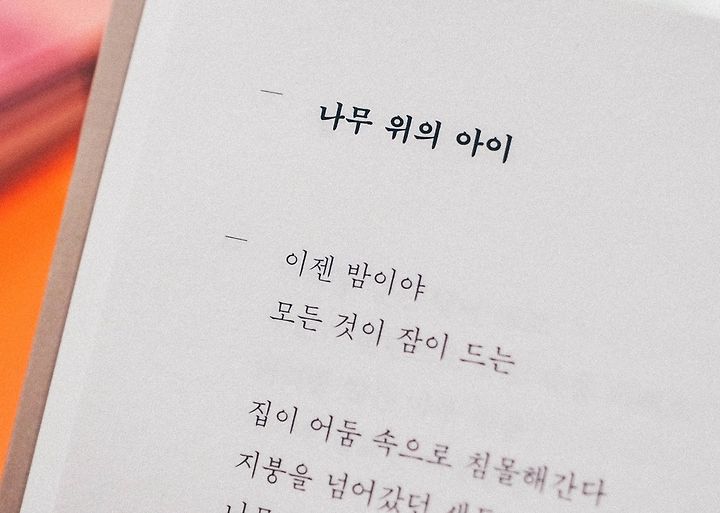 나무 위의 아이
이젠 밤이야
모든 것이 잠이 드는
집이 어둠 속으로 침몰해간다
지붕을 넘어갔던